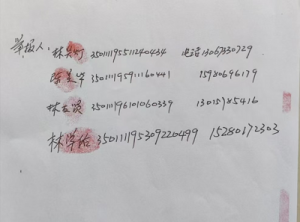 举报人: 林 350111195511240434 电话13067330729
350111195911160441 15980696179
林 350111196101060339 13015785416
林学佑 350111195309220499 15280172303